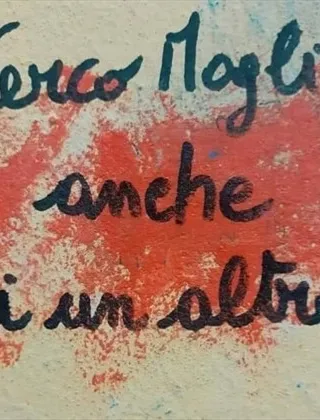 erco Mogli
anche
i un altr